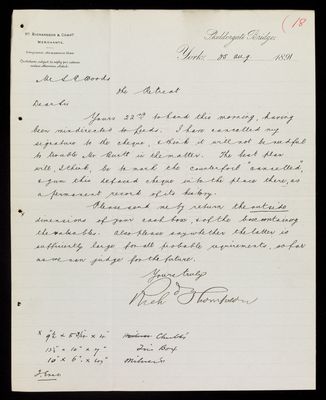 18
WM. RICHARDSON & COMPY
MERCHANTS.
Skeldergate Bridge,
York, 25 Aug 1891
Mr S. R. Woods
The Retreat
Dear Sir
Yours 22nd to hand this morning, having
been misdirected to Leeds. I have cancelled my
signature to the cheque, & think it will not be needful
to trouble Mr in the matter. The best plan
will, I think, be to mark the counterfoil "cancelled",
& gum this defaced cheque in to the place there, as
a permanent record of its history.
Please send me by return the outside
dimensions of your cash box, & of the box containing
the valuables. Also please say whether the latter is
sufficiently large for all probable requirements, so far
as we can judge for the future.
Yours truly
Richd Thompson
x 4" Chubb's
x 10" x 7" Tin Box
10" x 6" x Milner's